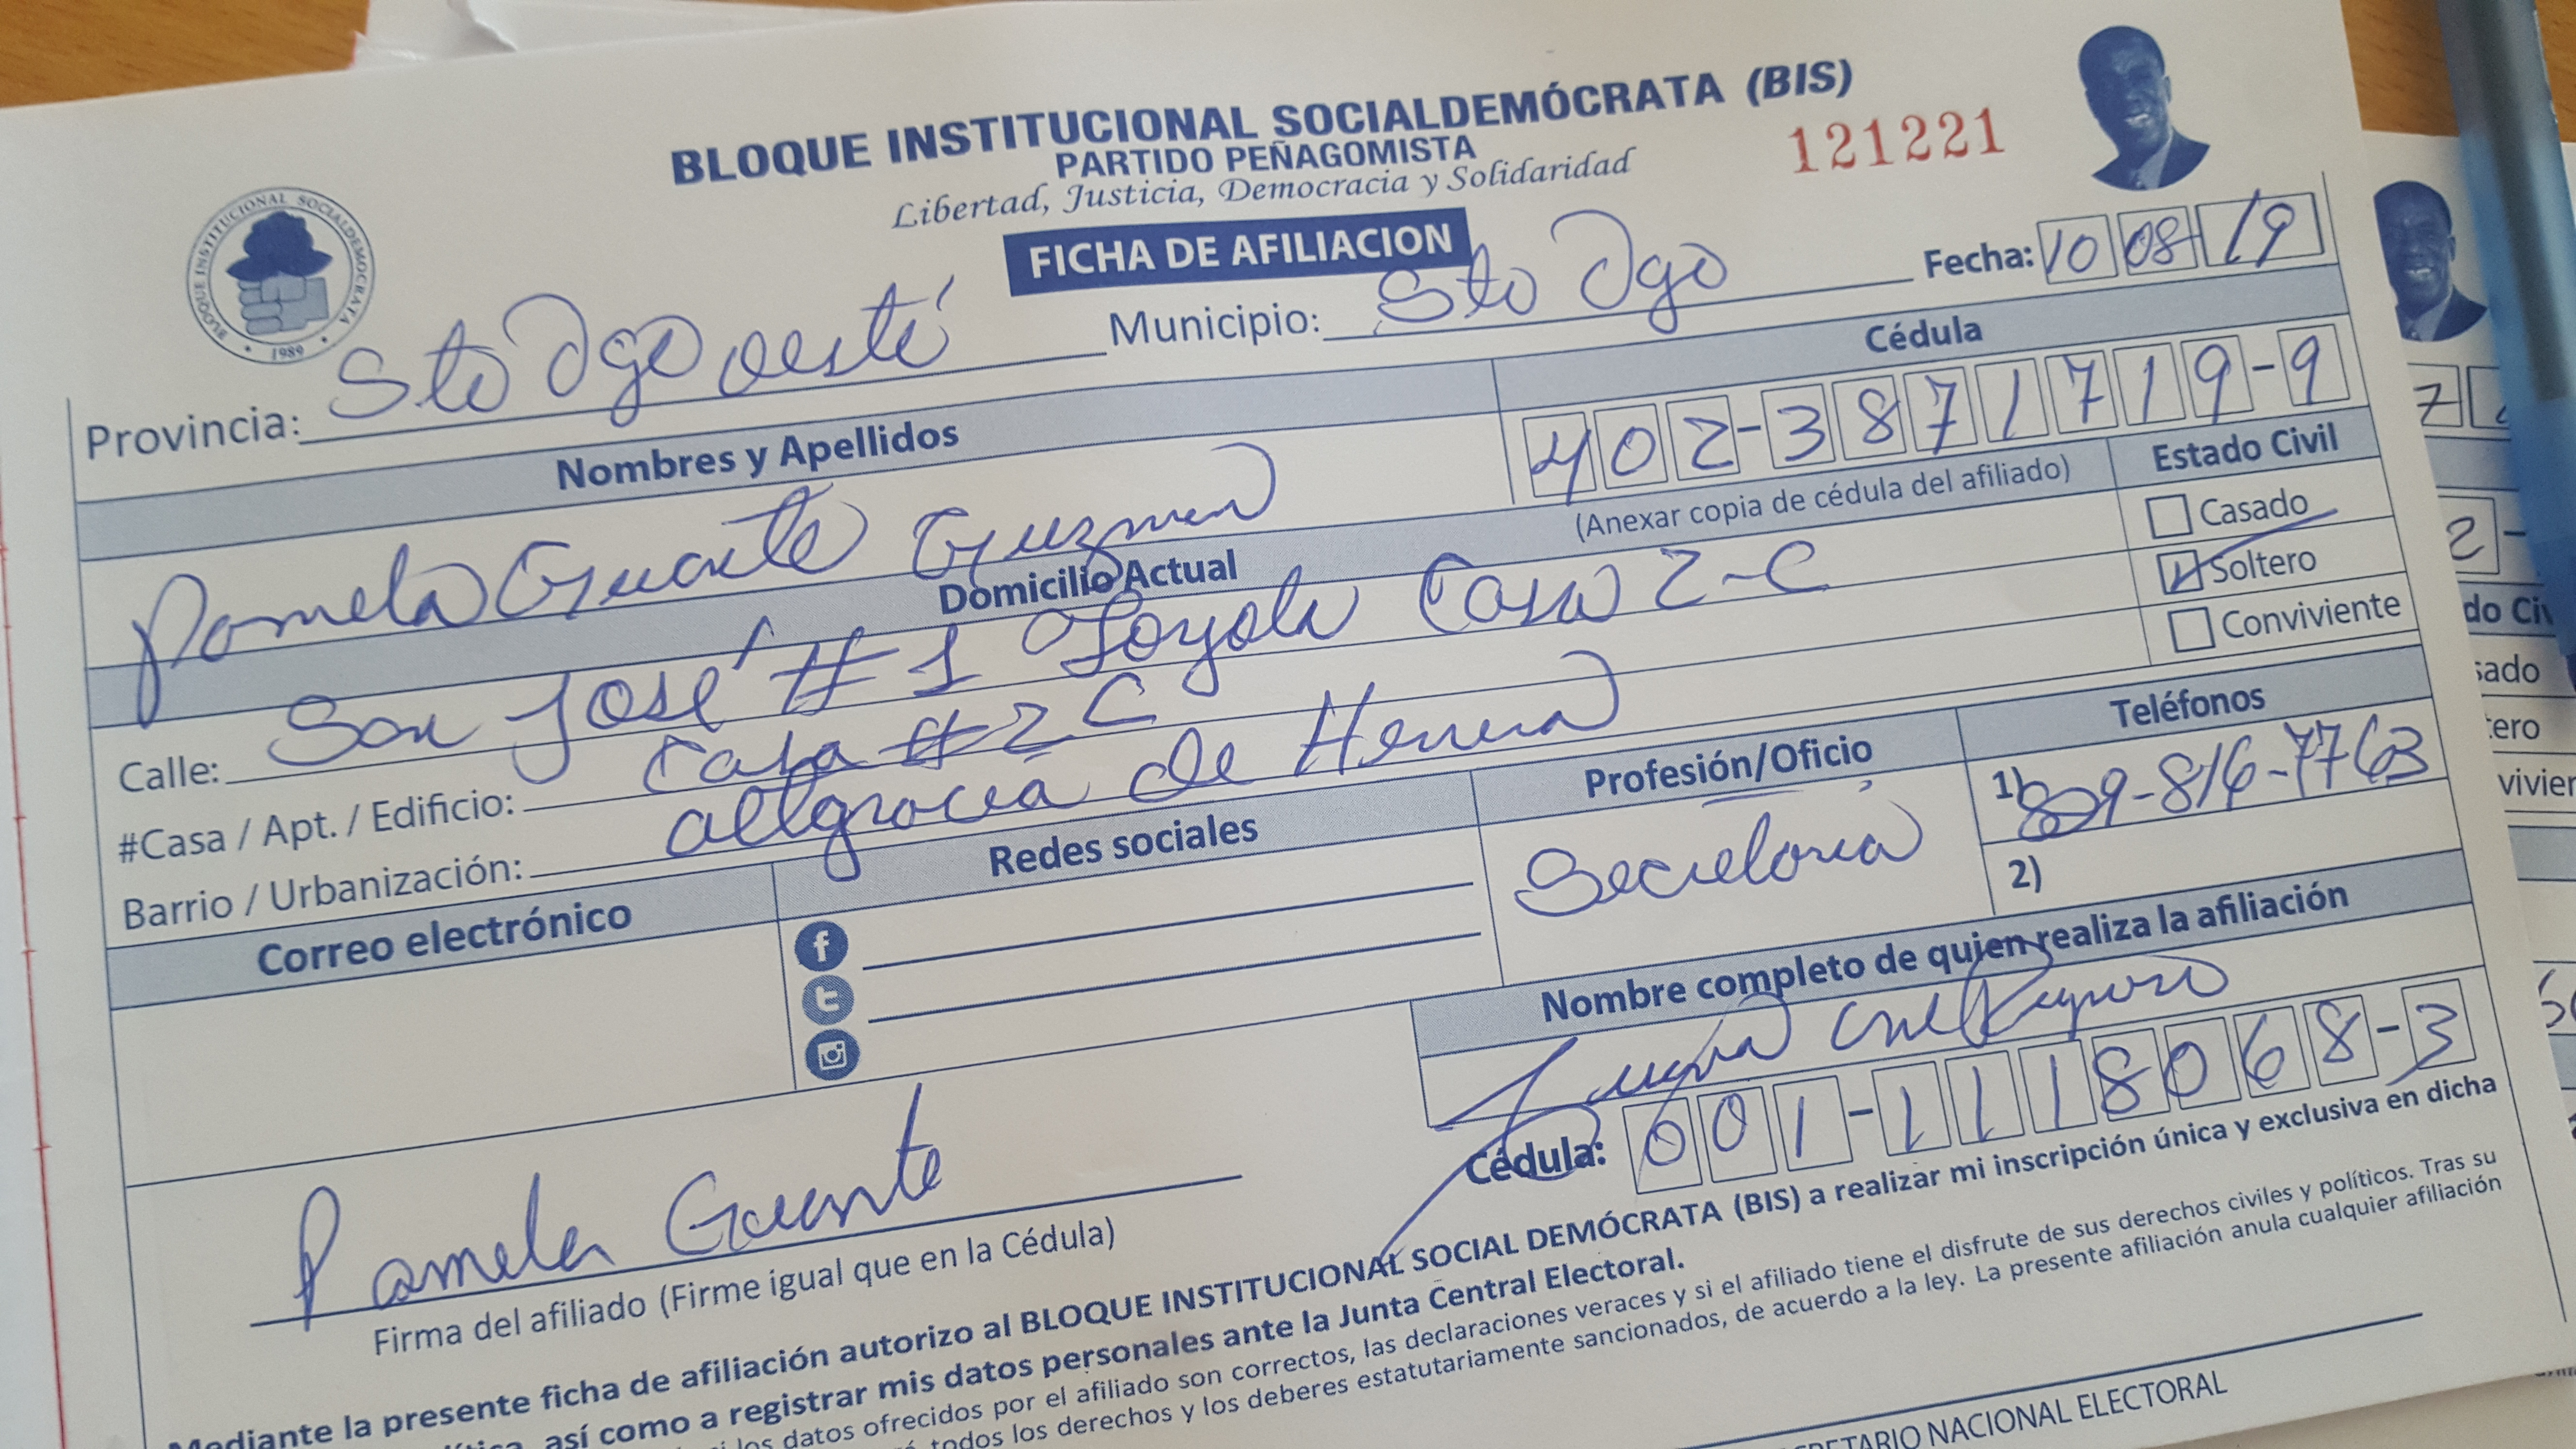 BLOQUE INSTITUCIONAL SOCIALDEMÓCRATA (BIS)
PARTIDO PEÑAGOMISTA
Libertad, Justicia, Democracia y Solidaridad
121221
FICHA DE AFILIACION
BLOQUE INSTITUCIONAL SOCIALDEMOCRATA
1989
Fecha: 10 08 19
Provincia: Sto Dgo oeste Municipio: Sto Dgo
Nombres y Apellidos
Cédula
Pamela Guante Guzman
402-3871719-9
(Anexar copia de cédula del afiliado)
Estado Civil
Casado
Soltero
Conviviente
Domicilio Actual
Calle: San José #1 Loyola Casa 2-C
#Casa / Apt. / Edificio: Casa #2 C
Barrio / Urbanización: altgracia de Herrera
Correo electrónico
Redes sociales
Profesión/Oficio
Secretaria
Teléfonos
1) 809-816-7763
2)
Nombre completo de quien realiza la afiliación
Cédula: 001-1118068-3
Pamela Guante
Firma del afiliado (Firme igual que en la Cédula)
Mediante la presente ficha de afiliación autorizo al BLOQUE INSTITUCIONAL SOCIAL DEMÓCRATA (BIS) a realizar mi inscripción única y exclusiva en dicha
así como a registrar mis datos personales ante la Junta Central Electoral.
los datos ofrecidos por el afiliado son correctos, las declaraciones veraces y si el afiliado tiene el disfrute de sus derechos civiles y políticos. Tras su
todos los derechos y los deberes estatutariamente sancionados, de acuerdo a la ley. La presente afiliación anula cualquier afiliación
SECRETARIO NACIONAL ELECTORAL